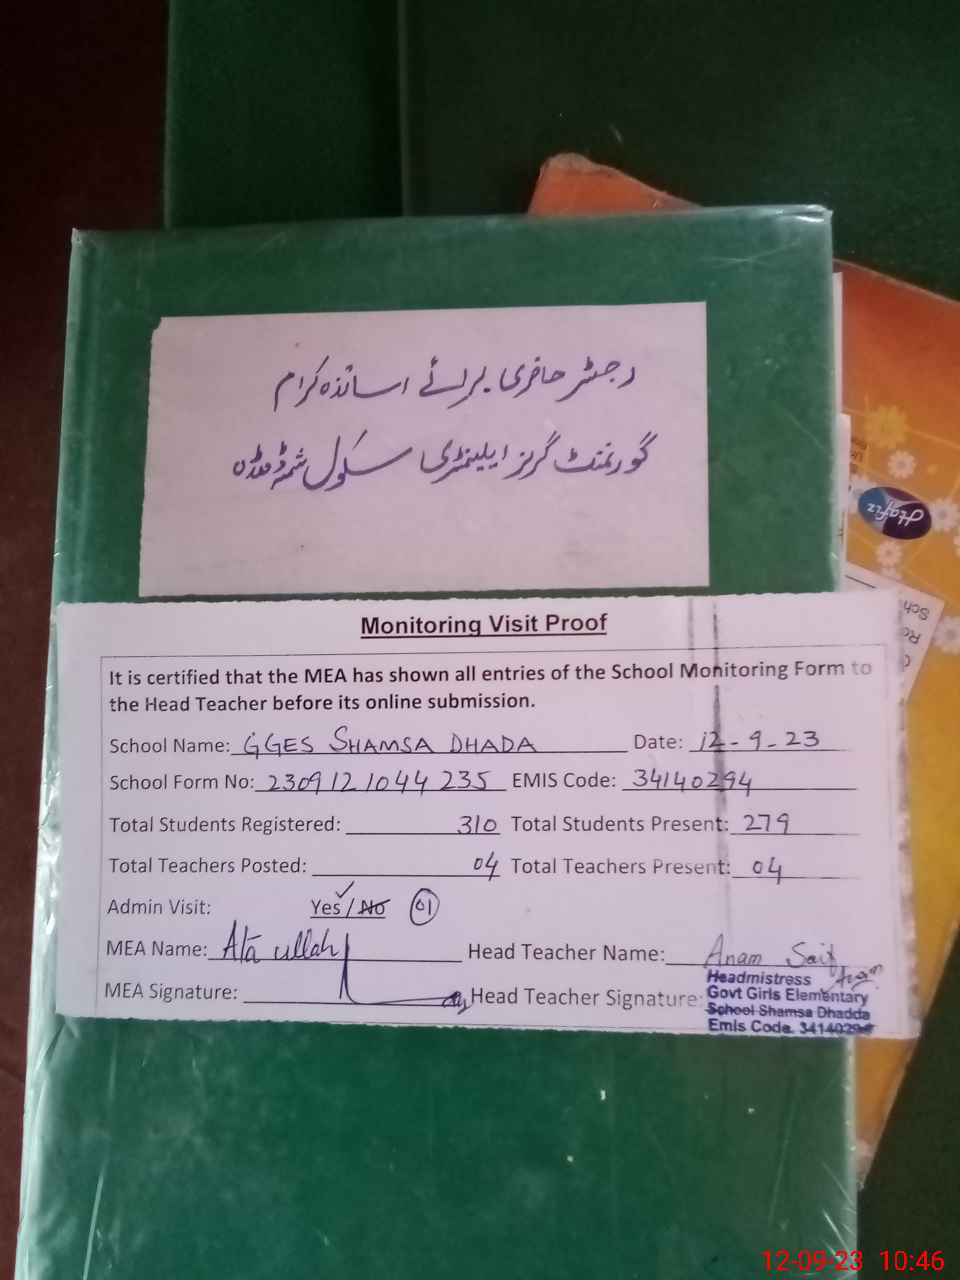 رجسٹر حاضری برائے اساتذہ کرام
گورنمنٹ گرلز ایلیمنٹری سکول شمسہ ڈھڈہ
Hafiz
Sch
Ro
Monitoring Visit Proof
It is certified that the MEA has shown all entries of the School Monitoring Form to
the Head Teacher before its online submission.
School Name: GGES SHAMSA DHADA Date: 12-9-23
School Form No: 230912 1044 235 EMIS Code: 34140294
Total Students Registered: 310 Total Students Present: 279
Total Teachers Posted: 04 Total Teachers Present: 04
Admin Visit: Yes / No 01
MEA Name: Ata ullah Head Teacher Name: Anam Saif
MEA Signature: Head Teacher Signature: Anam
Headmistress
Govt Girls Elementary
School Shamsa Dhadda
Emis Code. 34140294
12-09-23 10:46